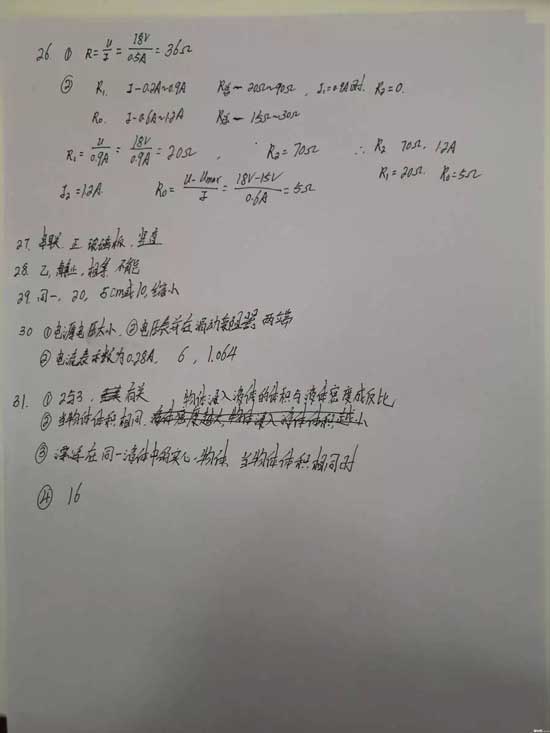 26. ① R=U/I=18V/0.5A=36Ω
② R₁ I-0.2A~0.9A R总-20Ω~90Ω, I₁=0.9A时 R₂=0.
R₀ I-0.6A~1.2A R总-15Ω~30Ω
R₁=U/0.9A=18V/0.9A=20Ω, R₂=70Ω ∴ R₂ 70Ω, 1.2A
I₂=1.2A R₀=(U-Umax)/I=(18V-15V)/0.6A=5Ω R₁=20Ω R₀=5Ω
27. 串联 正 玻璃板
28. 乙, 静止, 相等, 不能
29. 同一, 20, 5cm或10, 缩小
30 ①电源电压太小, ②电压表并在滑动变阻器两端
③电流表示数为0.28A, 6, 1.064
31. ① 2与3, 有关 物体浸入液体的体积与液体密度成反比
② 当物体体积相同, 液体密度越大, 物体浸入液体体积越小
③ 同一液体中 物体, 当物体体积相同时
④ 16